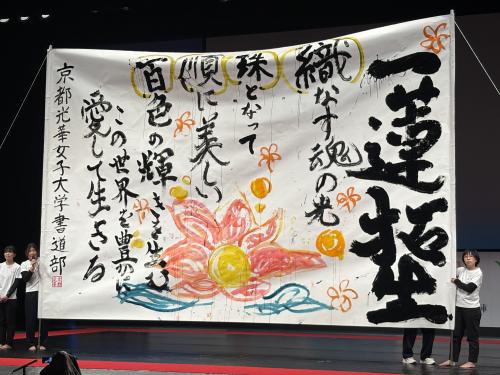 一蓮托生
織なす魂の光
珠となって
順に美しい
百色の輝きを生む
この世界を豊かに
愛して生きる
京都光華女子大学書道部